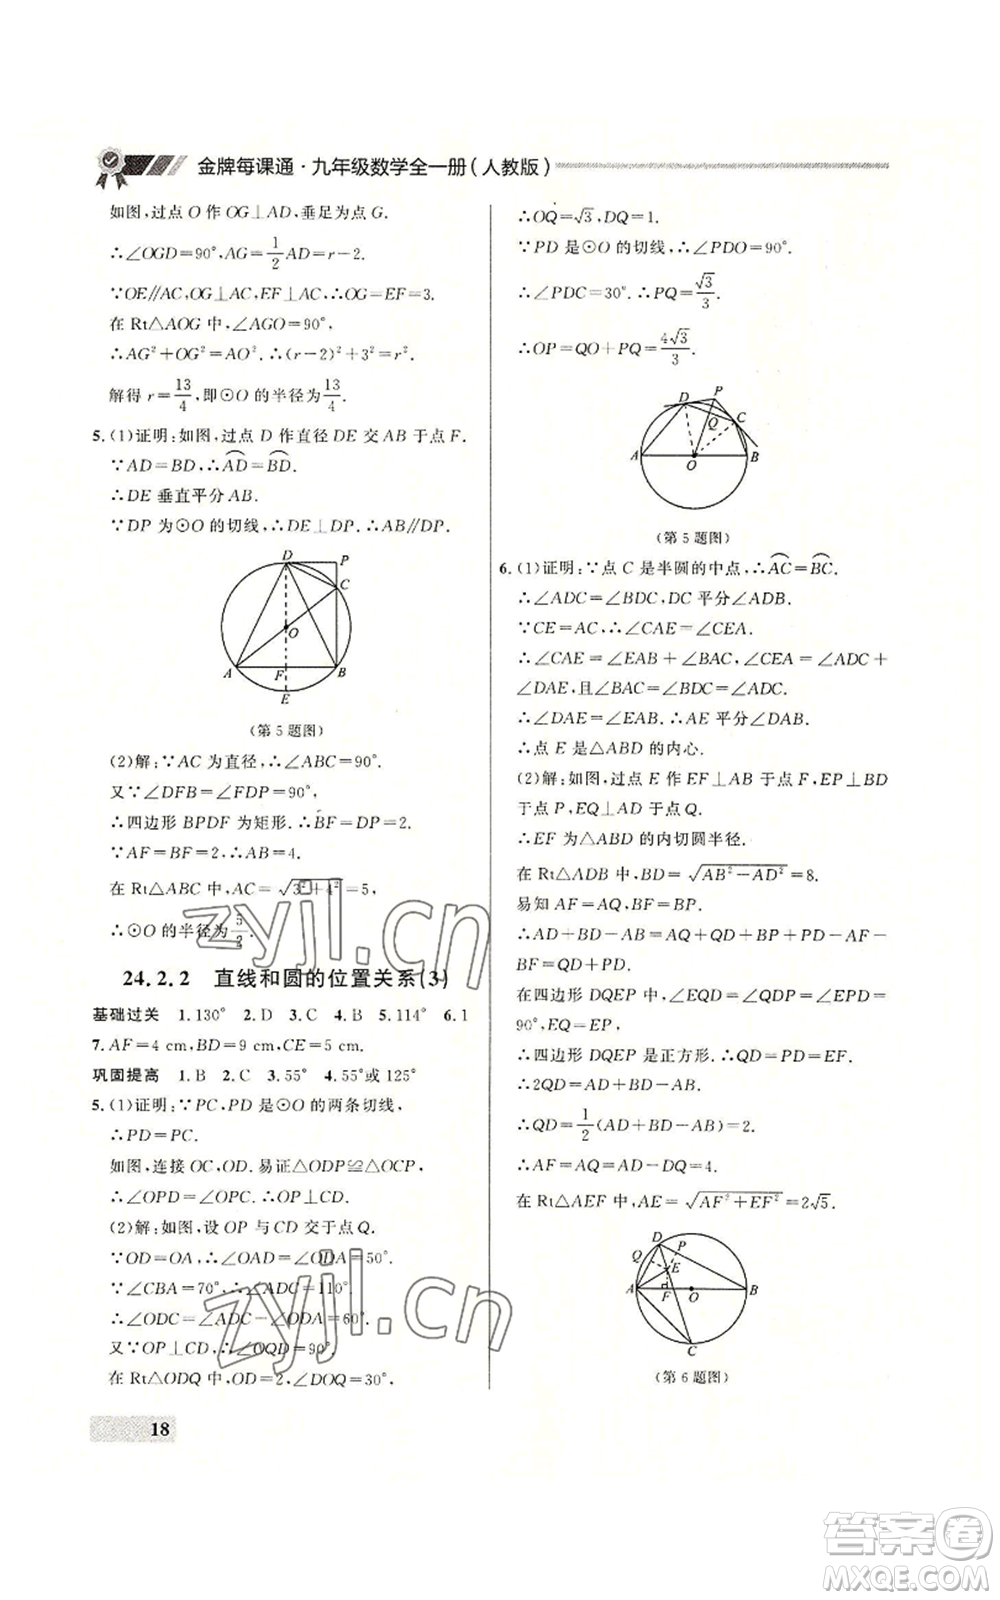 金牌每课通·九年级数学全一册(人教版)
如图,过点 O 作 OG⊥AD,垂足为点 G.
∴∠OGD=90°,AG=1/2AD=r-2.
∵OE∥AC,OG⊥AC,EF⊥AC,∴OG=EF=3.
在 Rt△AOG 中,∠AGO=90°,
∴AG²+OG²=AO².∴(r-2)²+3²=r².
解得 r=13/4,即⊙O 的半径为13/4.
5.(1)证明:如图,过点 D 作直径 DE 交 AB 于点 F.
∵AD=BD,∴⌒AD=⌒BD.
∴DE 垂直平分 AB.
∵DP 为⊙O 的切线,∴DE⊥DP.∴AB∥DP.
D
P
C
O
A
F
B
E
(第 5 题图)
(2)解:∵AC 为直径,∴∠ABC=90°.
又∵∠DFB=∠FDP=90°,
∴四边形 BPDF 为矩形.∴BF=DP=2.
∵AF=BF=2,∴AB=4.
在 Rt△ABC 中,AC=√3²+4²=5,
∴⊙O 的半径为5/2.
24.2.2 直线和圆的位置关系(3)
基础过关 1.130° 2.D 3.C 4.B 5.114° 6.1
7.AF=4 cm,BD=9 cm,CE=5 cm.
巩固提高 1.B 2.C 3.55° 4.55°或 125°
5.(1)证明:∵PC,PD 是⊙O 的两条切线,
∴PD=PC.
如图,连接 OC,OD.易证△ODP≌△OCP,
∴∠OPD=∠OPC.∴OP⊥CD.
(2)解:如图,设 OP 与 CD 交于点 Q.
∵OD=OA,∴∠OAD=∠ODA=50°.
∵∠CBA=70°,∴∠ADC=110°.
∴∠ODC=∠ADC-∠ODA=60°.
又∵OP⊥CD,∴∠OQD=90°.
在 Rt△ODQ 中,OD=2,∠DOQ=30°,
18
∴OQ=√3,DQ=1.
∵PD 是⊙O 的切线,∴∠PDO=90°.
∴∠PDC=30°.∴PQ=√3/3.
∴OP=QO+PQ=4√3/3.
D
P
C
Q
A
O
B
(第 5 题图)
6.(1)证明:∵点 C 是半圆的中点,∴⌒AC=⌒BC.
∴∠ADC=∠BDC,DC 平分∠ADB.
∵CE=AC,∴∠CAE=∠CEA.
∴∠CAE=∠BAC+∠BAE,∠CEA=∠ADC+
∠DAE,且∠BAC=∠BDC=∠ADC,
∴∠DAE=∠BAE.∴AE 平分∠DAB.
∴点 E 是△ABD 的内心.
(2)解:如图,过点 E 作 EF⊥AB 于点 F,EP⊥BD
于点 P,EQ⊥AD 于点 Q.
∴EF 为△ABD 的内切圆半径.
在 Rt△ADB 中,BD=√AB²-AD²=8.
易知 AF=AQ,BF=BP.
∴AD+BD-AB=AQ+QD+BP+PD-
AF-BF=QD+PD.
∵在四边形 DQEP 中,∠QDP=∠DQE=∠DPE=
90°,EQ=EP,
∴四边形 DQEP 是正方形.∴QD=PD=EF.
∴2QD=AD+BD-AB=4.
∴QD=1/2(AD+BD-AB)=2.
∴AF=AQ=AD-DQ=4.
在 Rt△AEF 中,AE=√AF²+EF²=2√5.
D
P
Q
E
A
F
O
B
C
(第 6 题图)
zyjl.cn
zyjl.cn
答案圈
MXQE.COM